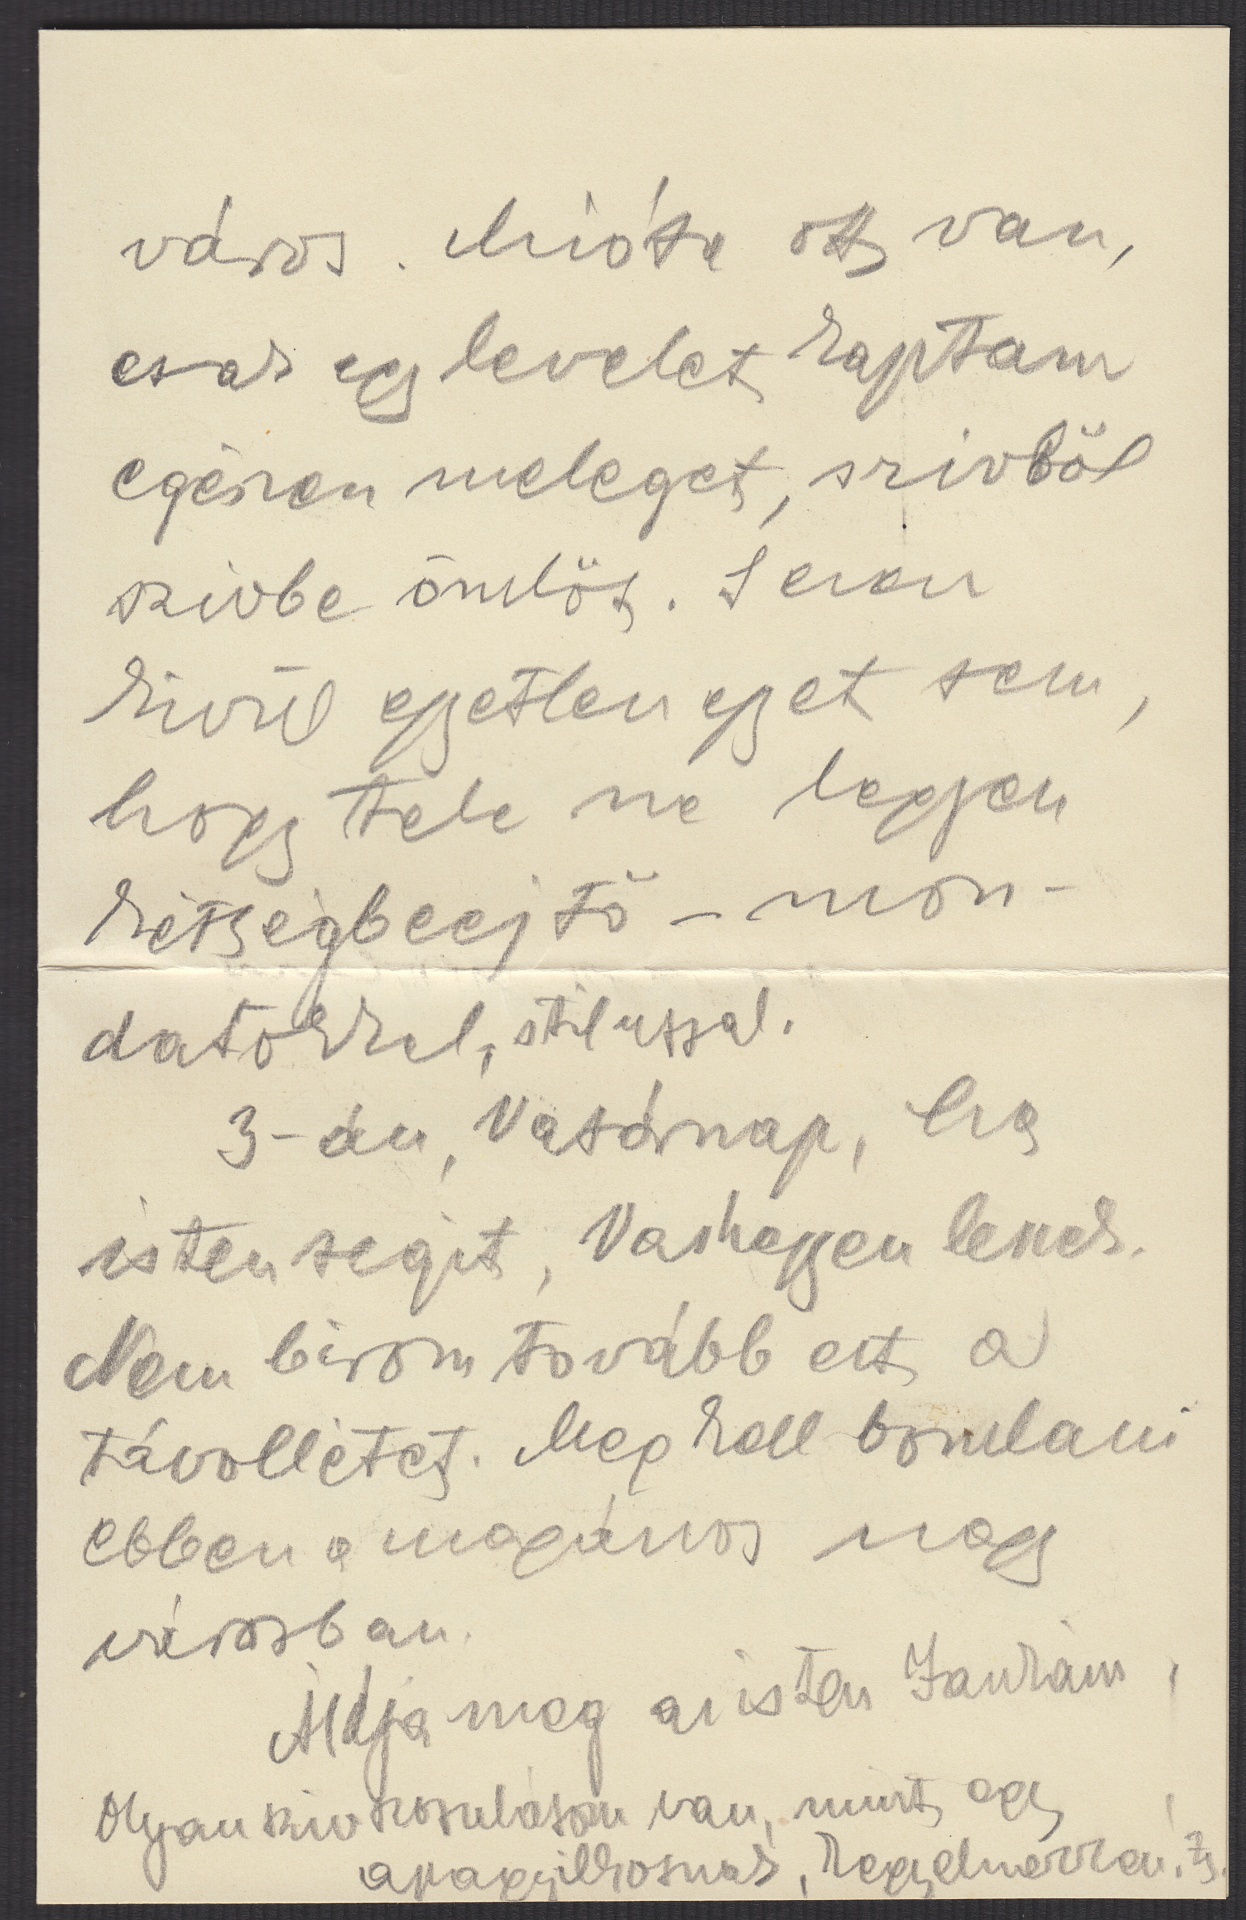 város. Mióta ott van,
csak egy levelet kaptam
egészen meleget, szivből
szivbe ömlőt. S ezen
kivül egyetlen egyet sem,
hogy tele ne legyen
kétségbeejtő – mon-
datokkal, stilussal.
3-án, Vasárnap, ha
isten segit, Vashegyen leszek.
Nem birom tovább ezt a
távollétet. Meg kell bomlani
ebben a magános nagy
városban.
Áldja meg az isten Jankám,
Olyan szivszorulásom van, mint egy
apagyilkosnak, kegyelmezzen. Zs.